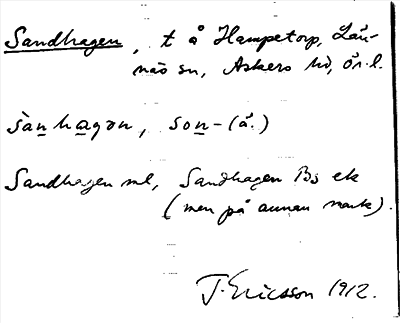 Sandhagen, t å Hampetorp, Län-
näs sn, Askers hd, Ör. l.
sànhagən, son-(ä.)
Sandhagen ml, Sandhagen Bs ek
(men på annan mark).
J. Ericsson 1912.